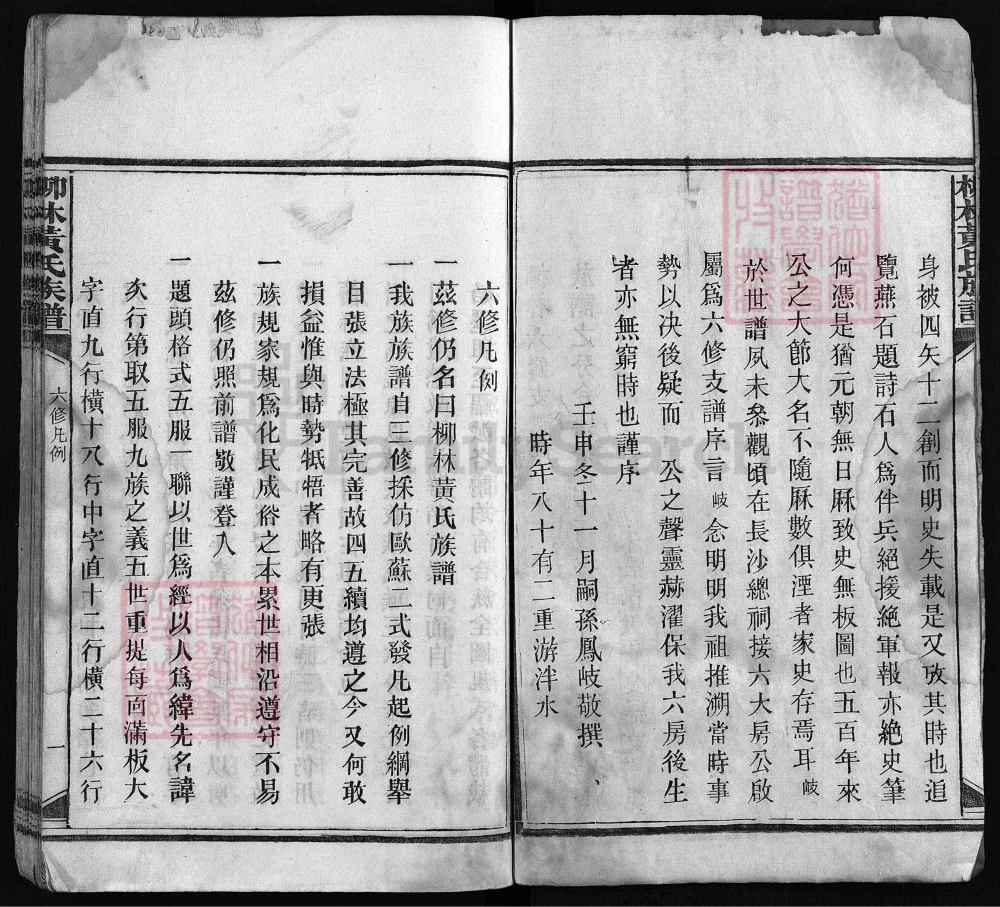 柳林黃氏族譜
身被四矢十二創而明史失載是又攷其時也追
覽燕石題詩石人爲伴兵絕援絕軍報亦絕史筆
何憑是猶元朝無日厤致史無板圖也五百年來
公之大節大名不隨厤數俱湮者家史存焉耳岐
於世譜夙未叅觀頃在長沙總祠接六大房公啟
屬爲六修支譜序言岐念明明我祖推溯當時事
勢以决後疑而　公之聲靈赫濯保我六房後生
者亦無窮時也謹序
壬申冬十一月嗣孫鳳岐敬撰
時年八十有二重游泮水
六修凡例
一茲修仍名曰柳林黃氏族譜
一我族族譜自三修採仿歐蘇二式發凡起例綱舉
目張立法極其完善故四五續均遵之今又何敢
損益惟與時勢牴牾者略有更張
一族規家規爲化民成俗之本累世相沿遵守不易
茲修仍照前譜敬謹登入
一題頭格式五服一聯以世爲經以人爲緯先名諱
次行第取五服九族之義五世重提每面滿板大
字直九行橫十八行中字直十三行橫二十六行
柳林黃氏族譜
六修凡例
一